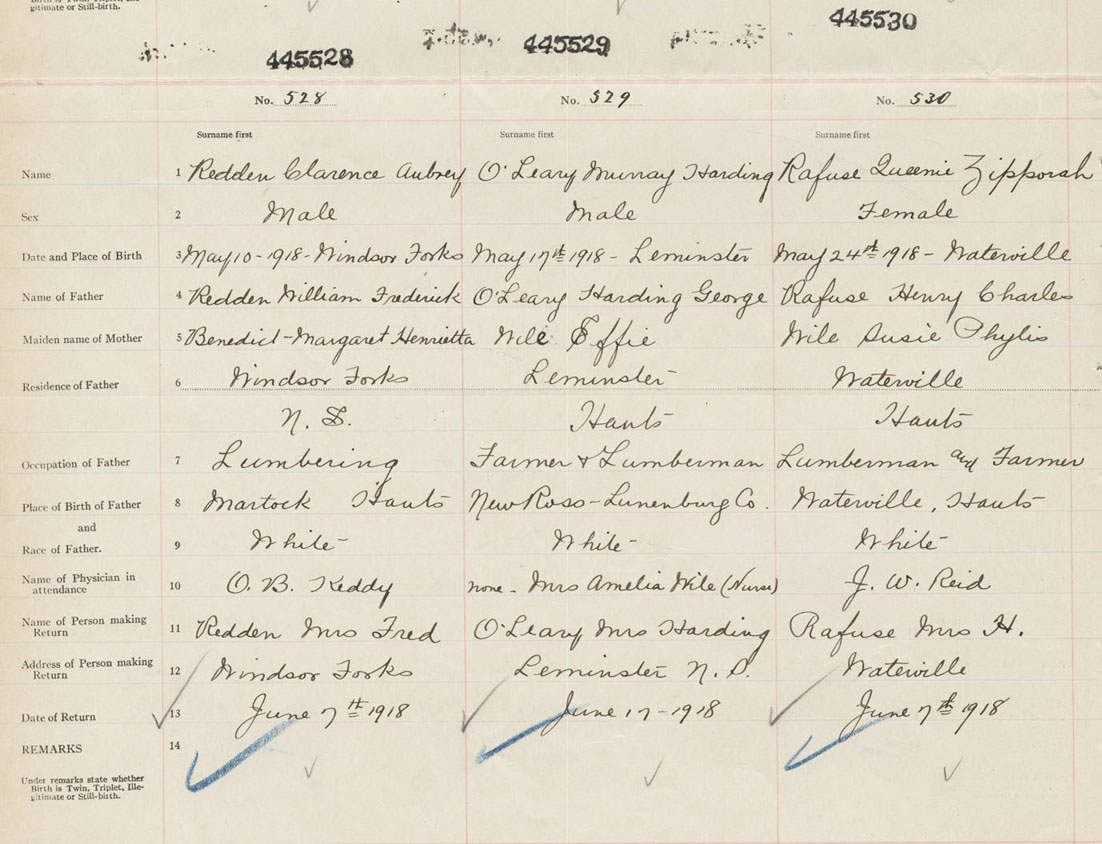 gitimate or Still-birth.
445528 445529 445530
No. 528 No. 529 No. 530
Surname first Surname first Surname first
Name 1 Redden Clarence Aubrey O'Leary Murray Harding Rafuse Queenie Zipporah
Sex 2 Male Male Female
Date and Place of Birth 3 May 10-1918- Windsor Forks May 17th 1918 - Leminster May 24th 1918 - Waterville
Name of Father 4 Redden William Frederick O'Leary Harding George Rafuse Henry Charles
Maiden name of Mother 5 Benedict-Margaret Henrietta Wile Effie Wile Susie Phylis
Residence of Father 6 Windsor Forks Leminster Waterville
N. S. Hants Hants
Occupation of Father 7 Lumbering Farmer & Lumberman Lumberman and Farmer
Place of Birth of Father 8 Martock Hants New Ross-Lunenburg Co. Waterville, Hants
and
Race of Father. 9 White White White
Name of Physician in
attendance 10 O. B. Keddy none - Mrs Amelia Wile (Nurse) J. W. Reid
Name of Person making
Return 11 Redden Mrs Fred O'Leary Mrs Harding Rafuse Mrs H.
Address of Person making
Return 12 Windsor Forks Leminster N.S. Waterville
Date of Return 13 June 7th 1918 June 17-1918 June 7th 1918
REMARKS 14
Under remarks state whether
Birth is Twin, Triplet, Ille-
gitimate or Still-birth.